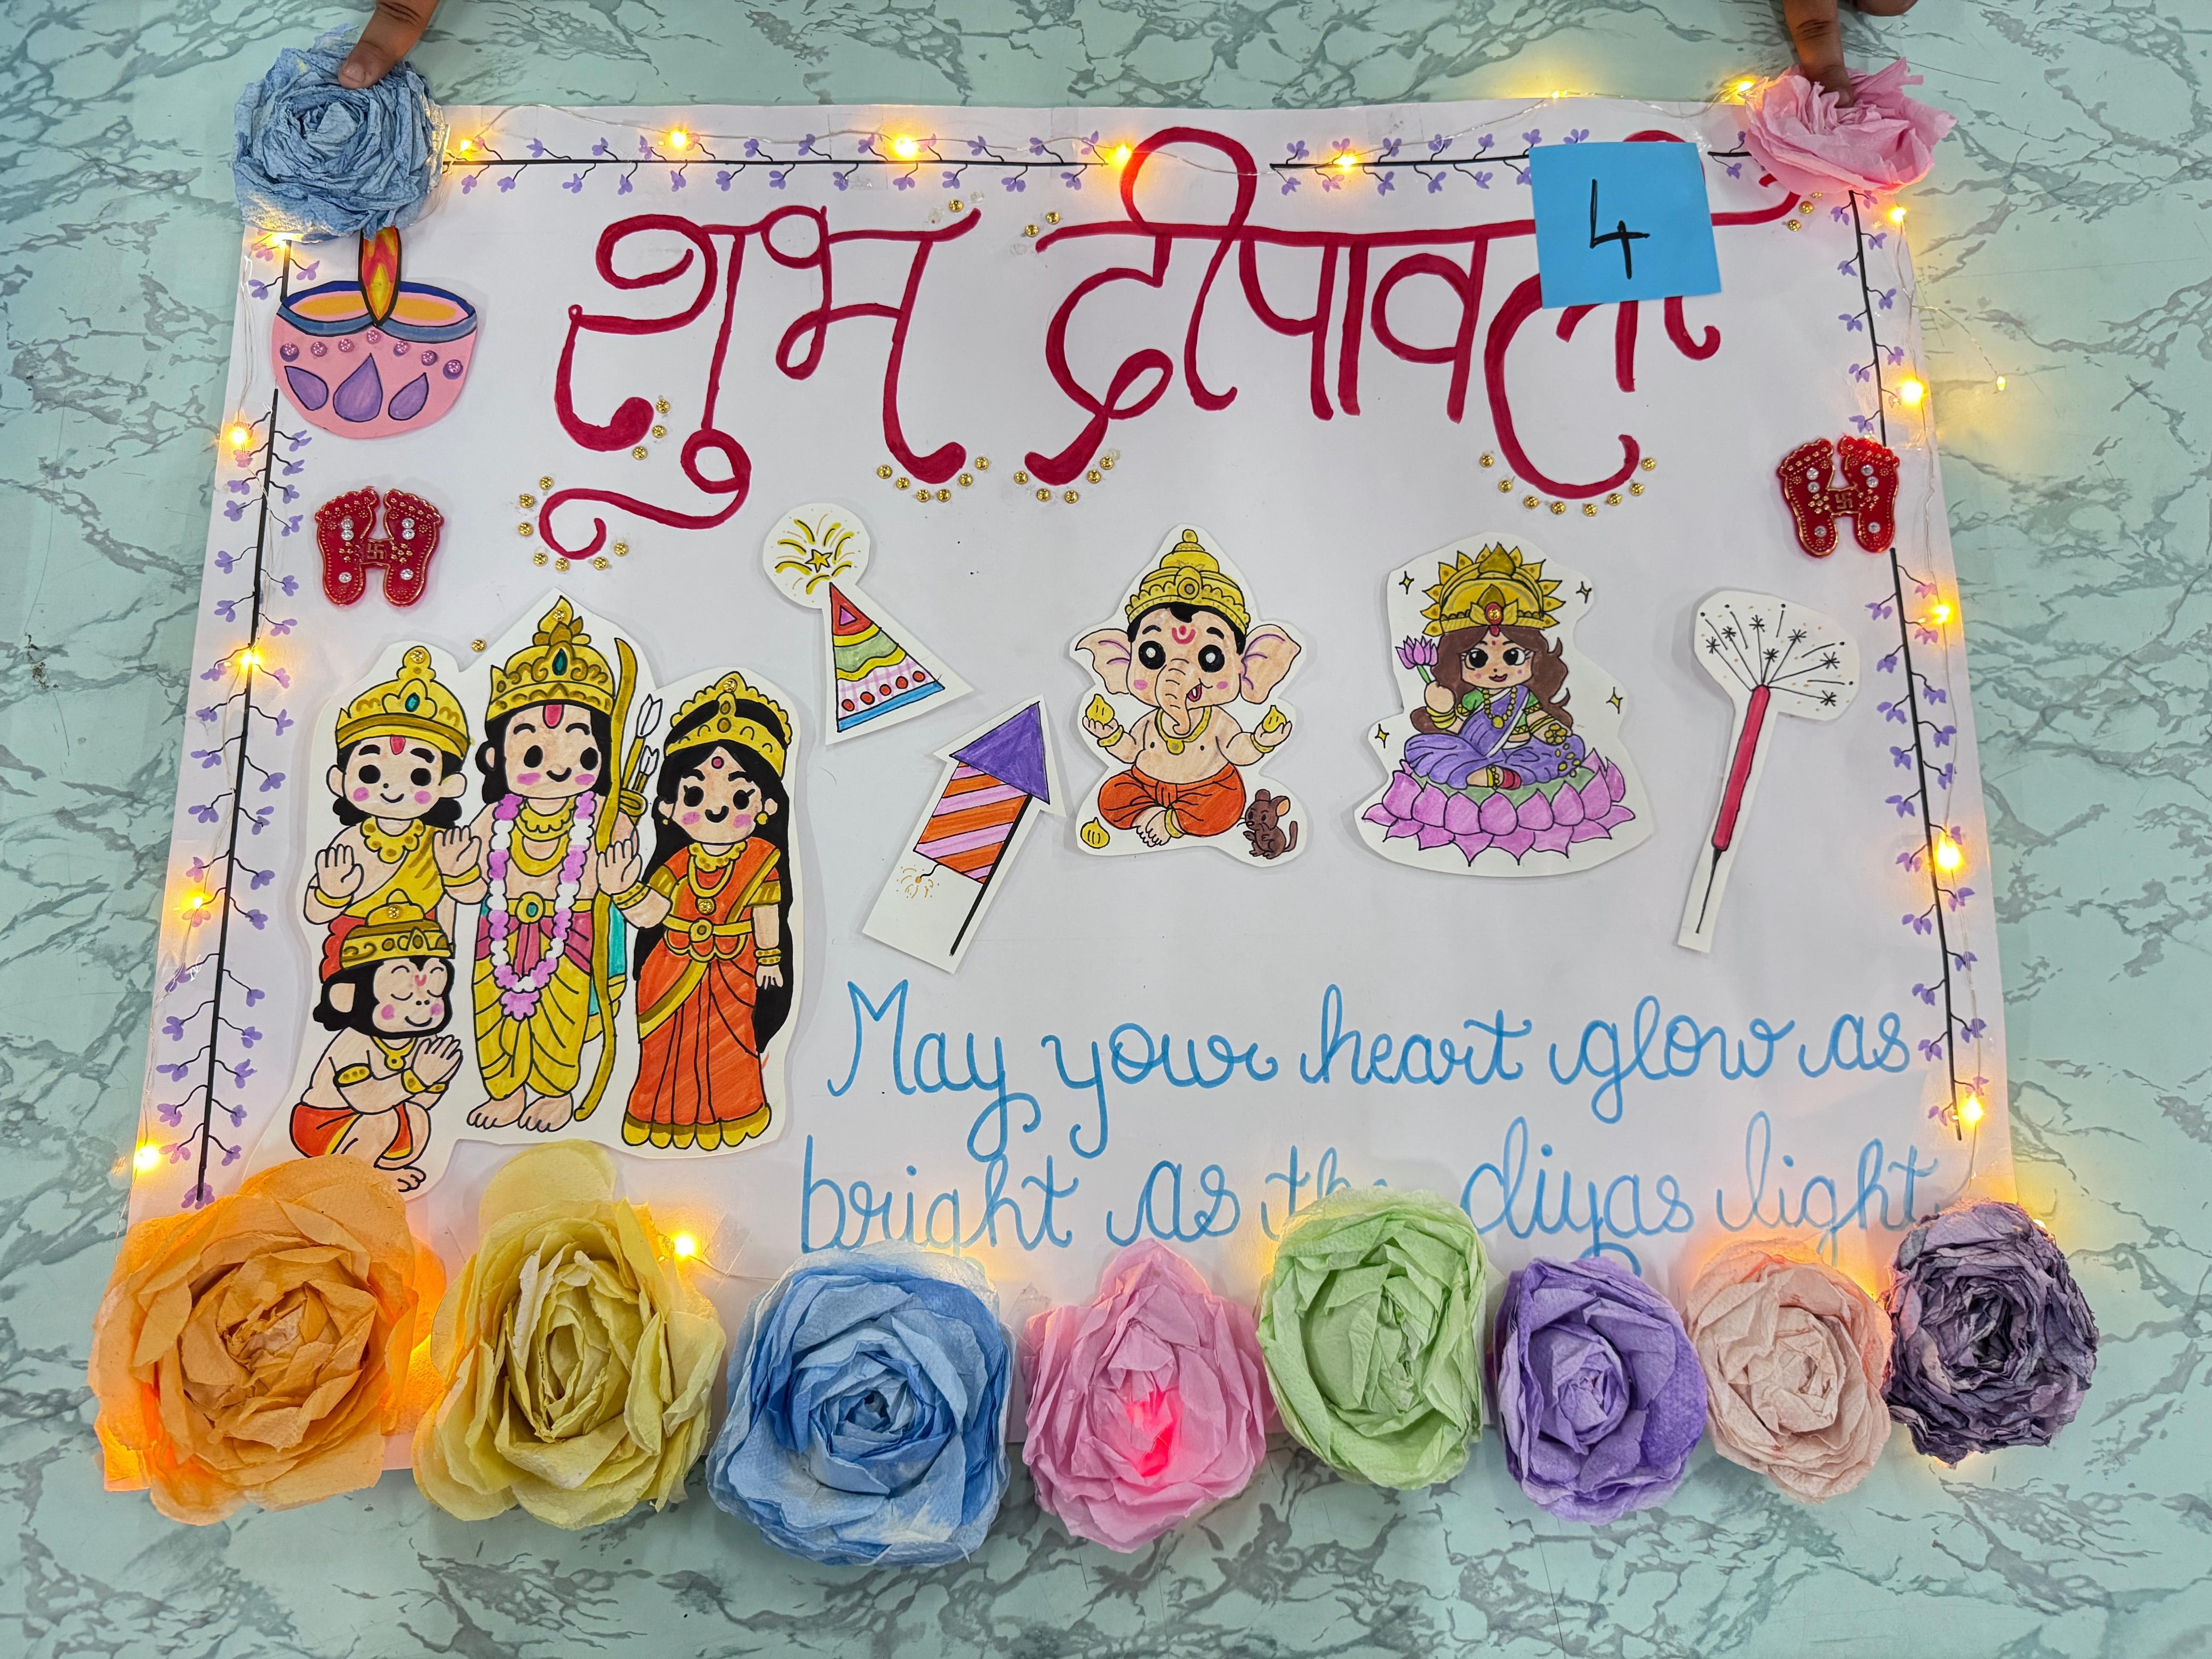 शुभ दीपावली
4
May your heart glow as
bright as the diyas light